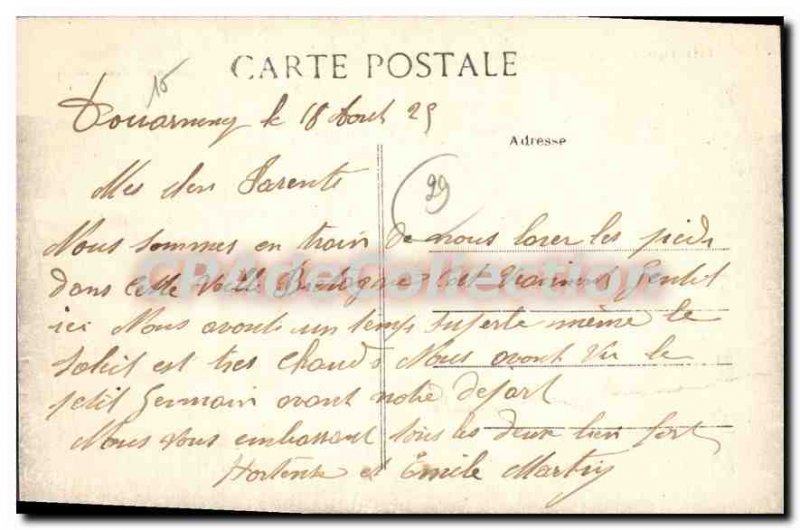 CARTE POSTALE
15
Douarnenez le 18 Aout 25
Adresse
29
Mes chers Parents
Nous sommes en train de nous laver les pieds
dans cette Veille Bretagne c'est vraiment Gentil
ici Nous avont un temp superte même le
Soleil est tres chaud Nous avont Vu le
petit Germain avant notre depart
Nous vous embrassant tous les deux bien fort
Hortense et Emile Martin
CPACollection